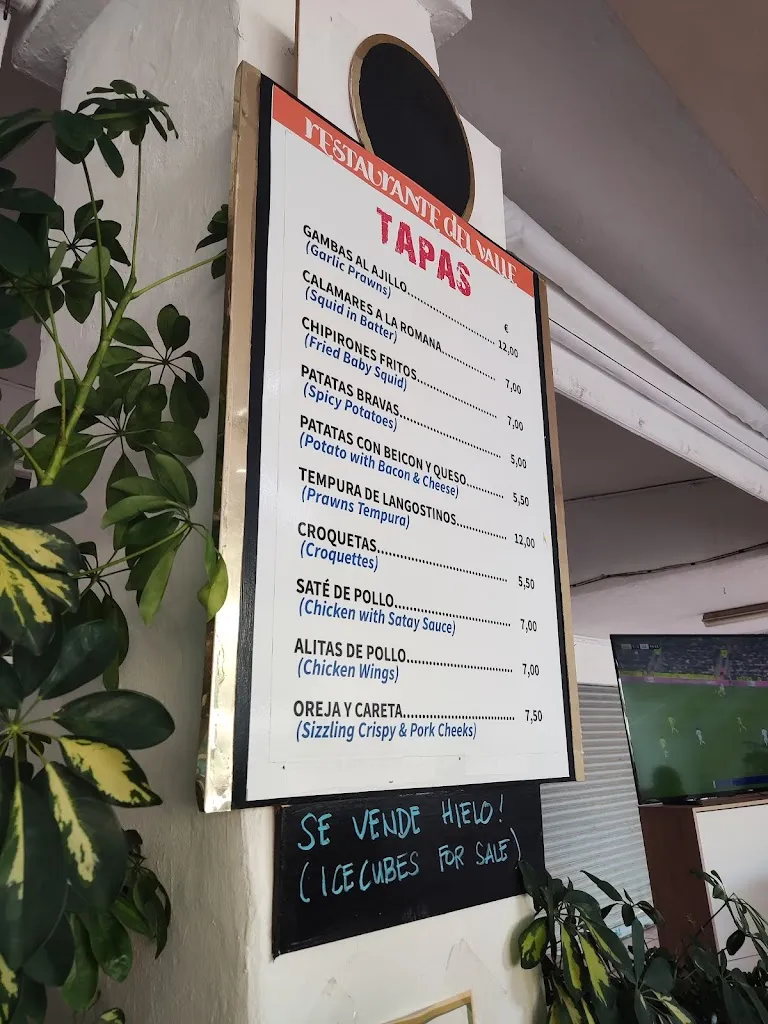 RESTAURANTE DEL VALLE
TAPAS
€
GAMBAS AL AJILLO 12,00
(Garlic Prawns)
CALAMARES A LA ROMANA 7,00
(Squid in Batter)
CHIPIRONES FRITOS 7,00
(Fried Baby Squid)
PATATAS BRAVAS 5,00
(Spicy Potatoes)
PATATAS CON BEICON Y QUESO 5,50
(Potato with Bacon & Cheese)
TEMPURA DE LANGOSTINOS 12,00
(Prawns Tempura)
CROQUETAS 5,50
(Croquettes)
SATÉ DE POLLO 7,00
(Chicken with Satay Sauce)
ALITAS DE POLLO 7,00
(Chicken Wings)
OREJA Y CARETA 7,50
(Sizzling Crispy & Pork Cheeks)
SE VENDE HIELO!
(ICECUBES FOR SALE)